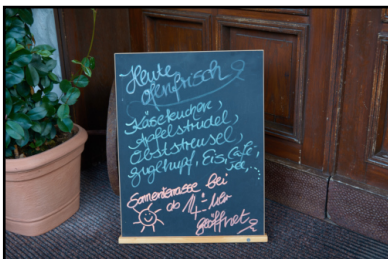 Heute
ofenfrisch
Käsekuchen,
Apfelstrudel,
Obststreusel,
Guglhupf, Eis, Café,
Sonnenterrasse bei
ab 14:- Uhr
geöffnet